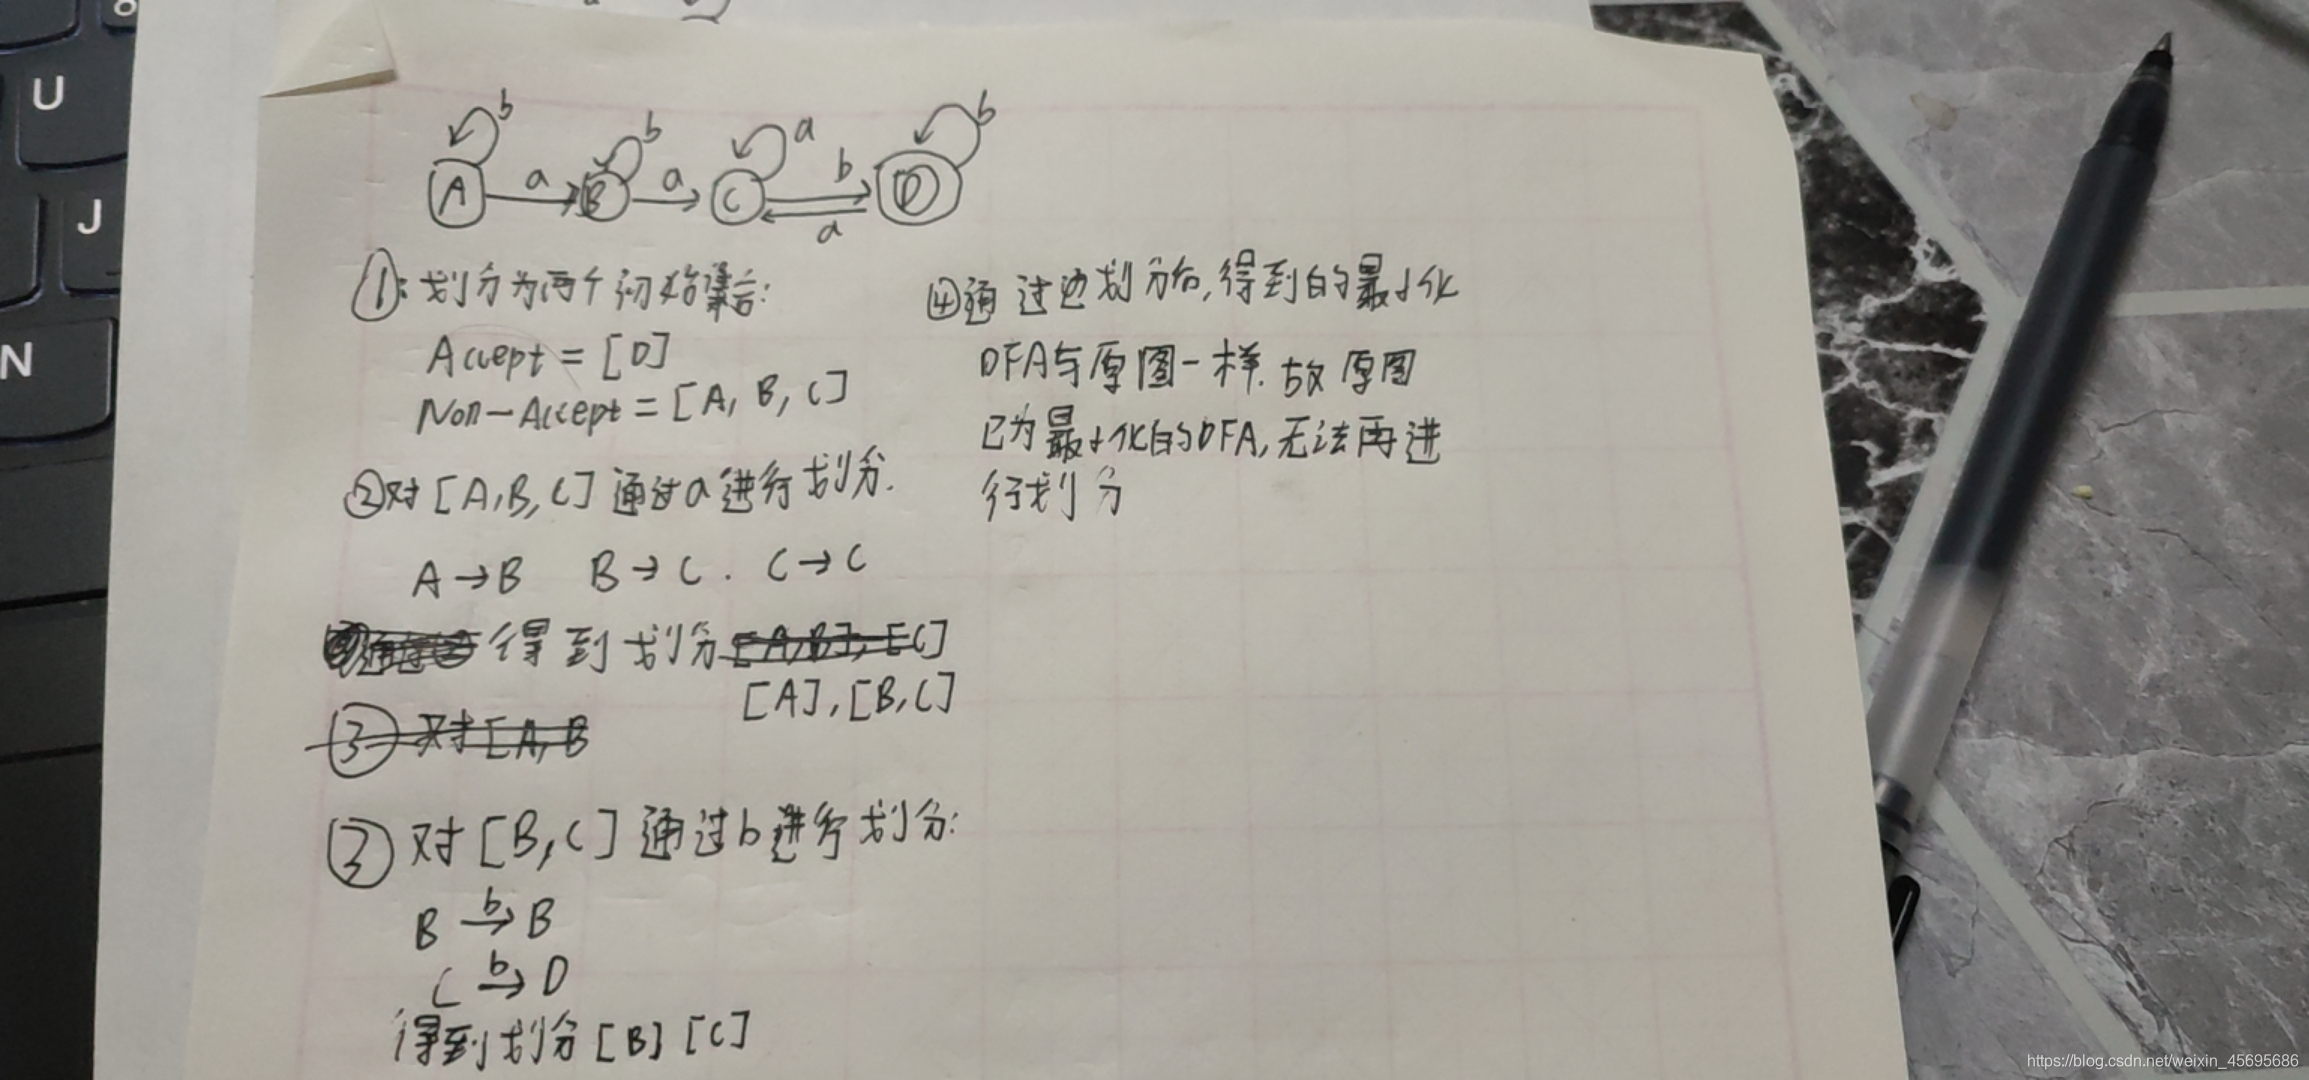 U
J
N
b b a b
A a B a C b D
a
①: 划分为两个初始集合:
Accept = [D]
Non-Accept = [A, B, C]
②对 [A,B,C] 通过a进行划分.
A→B B→C. C→C
得到划分 [A,B], [C]
[A],[B,C]
③ 对 [A, B
③ 对 [B,C] 通过b进行划分:
B b→ B
C b→ D
得到划分 [B] [C]
④通过边划分后,得到的最小化
DFA与原图一样. 故原图
已为最小化的DFA,无法再进
行划分
https://blog.csdn.net/weixin_45695686